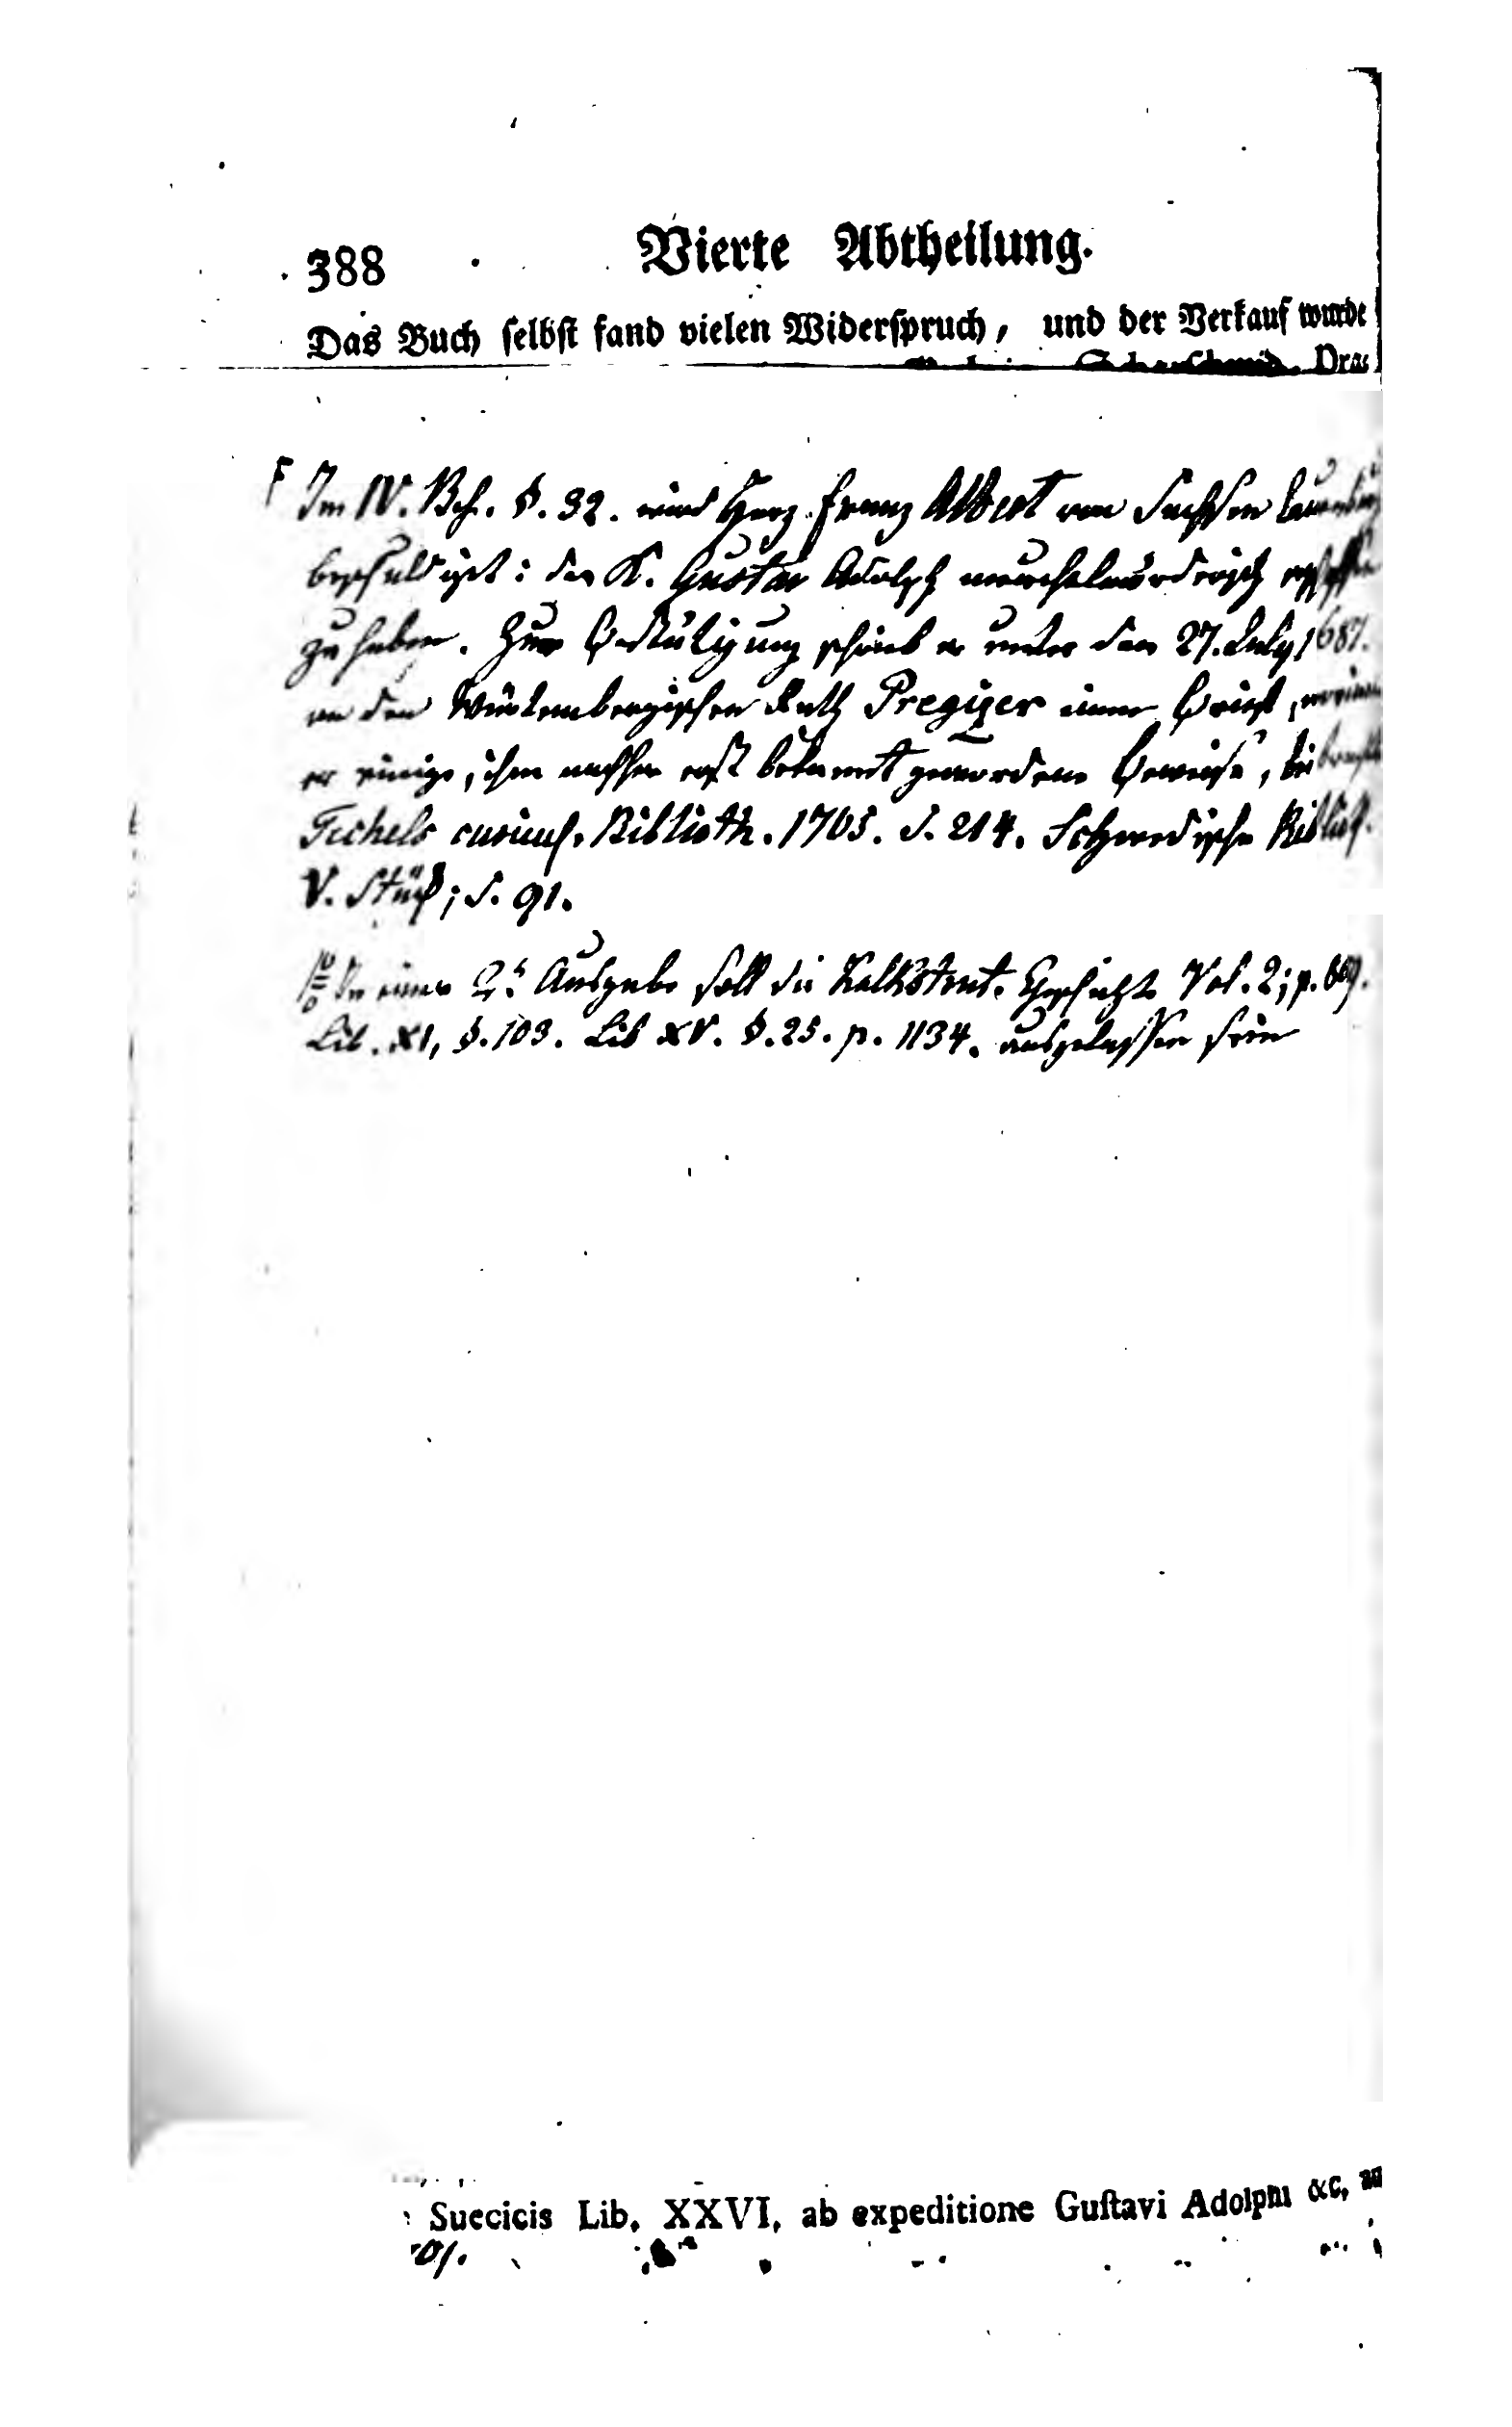 388 Vierte Abtheilung.
Das Buch selbst fand vielen Widerspruch, und der Verkauf wurde
Im IV. Bch. §. 32. wird Herz. Franz Albert von Sachsen Lauenburg
beschuldigt: den K. Gustav Adolph meuchelmörderisch erschossen
zu haben. Zur Bestätigung schrieb er unter dem 27. July 1687.
an den Würtembergischen Rath Pregizer einen Brief, worinn
er einige, ihm nachher erst bekannt gewordene Beweise, beibrachte
curieuse Biblioth. 1705. S. 214. Schwedische Biblioth.
V. Stück; S. 91.
In einer 2n Ausgabe soll die Kalkstein. Geschichte Vol. 2; p. 669.
Lib. XI, §. 103. Lib XV. §. 25. p. 1134. ausgelassen sein
Suecicis Lib. XXVI, ab expeditione Gustavi Adolphi &c.